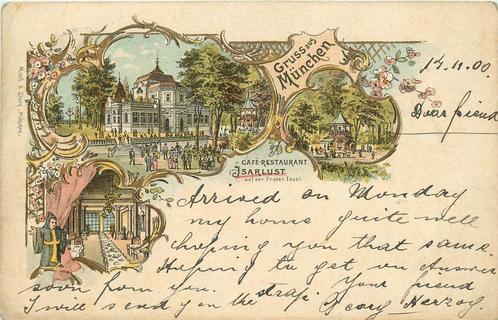 Gruss aus
München
14.11.00
Dear friend
CAFÉ-RESTAURANT
ISARLUST
auf der Prater Insel.
Arrived on Monday
my home quite well
hoping you that same.
Hoping to get an Answer
soon from you. Your friend
I will send you the straf. Georg Herzog.